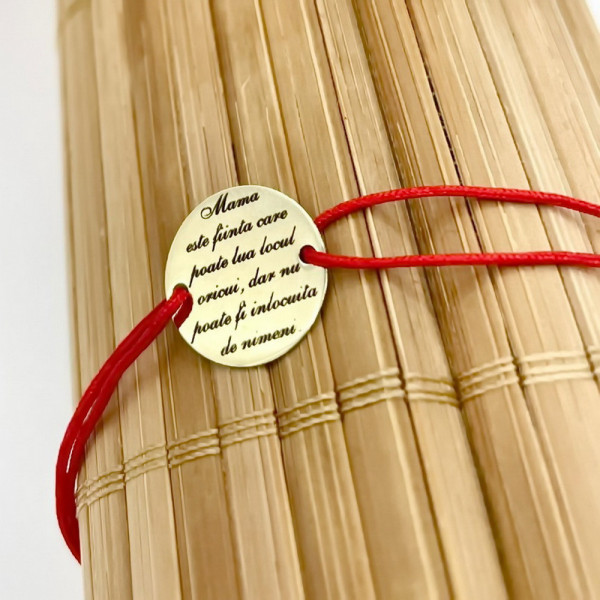 Mama
este fiinta care
poate lua locul
oricui, dar nu
poate fi inlocuita
de nimeni.